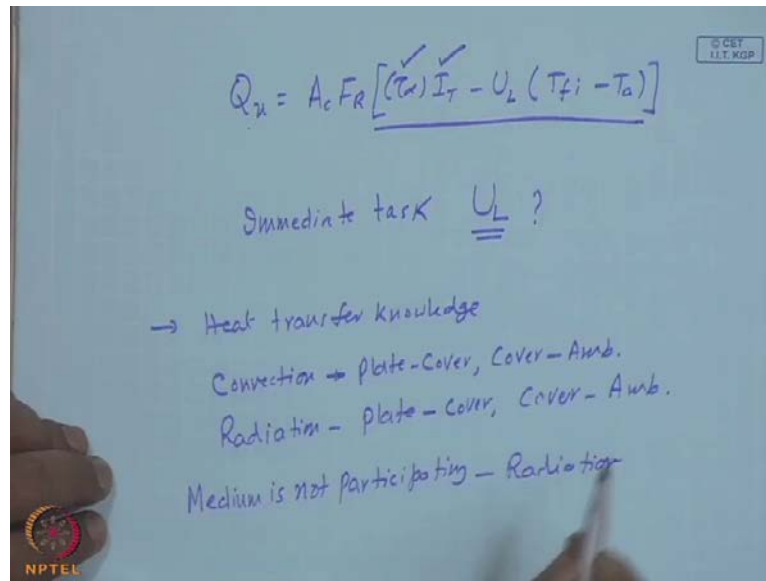 © CET
I.I.T. KGP
Qu = Ac FR [(τα) IT - UL (Tfi - Ta)]
Immediate task UL ?
→ Heat transfer knowledge
Convection → Plate-Cover, Cover-Amb.
Radiation - Plate - Cover, Cover - Amb.
Medium is not Participating - Radiation
NPTEL